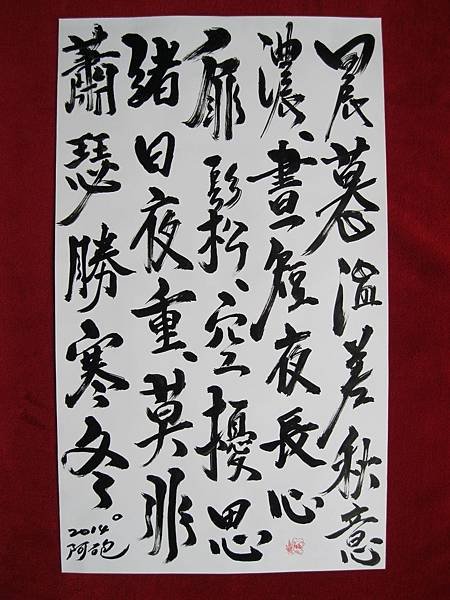 晨暮溫差秋意
濃、晝短夜長心
扉鬆、空擾思
緒日夜重、莫非
蕭瑟勝寒冬。
2014
阿砲